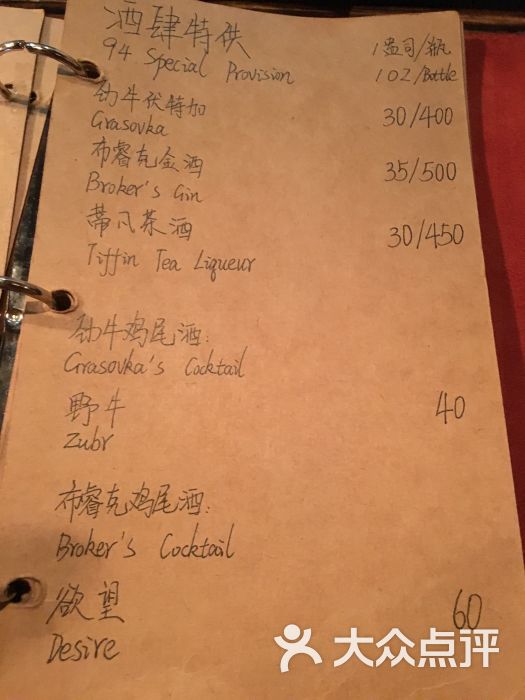 酒肆特供 1盎司/瓶
94 Special Provision 1OZ/Bottle
劲牛伏特加 30/400
Grasovka
布睿克金酒 35/500
Broker's Gin
蒂凡茶酒 30/450
Tiffin Tea Liqueur
劲牛鸡尾酒:
Grasovka's Cocktail
野牛 40
Zubr
布睿克鸡尾酒:
Broker's Cocktail
欲望 60
Desire
大众点评